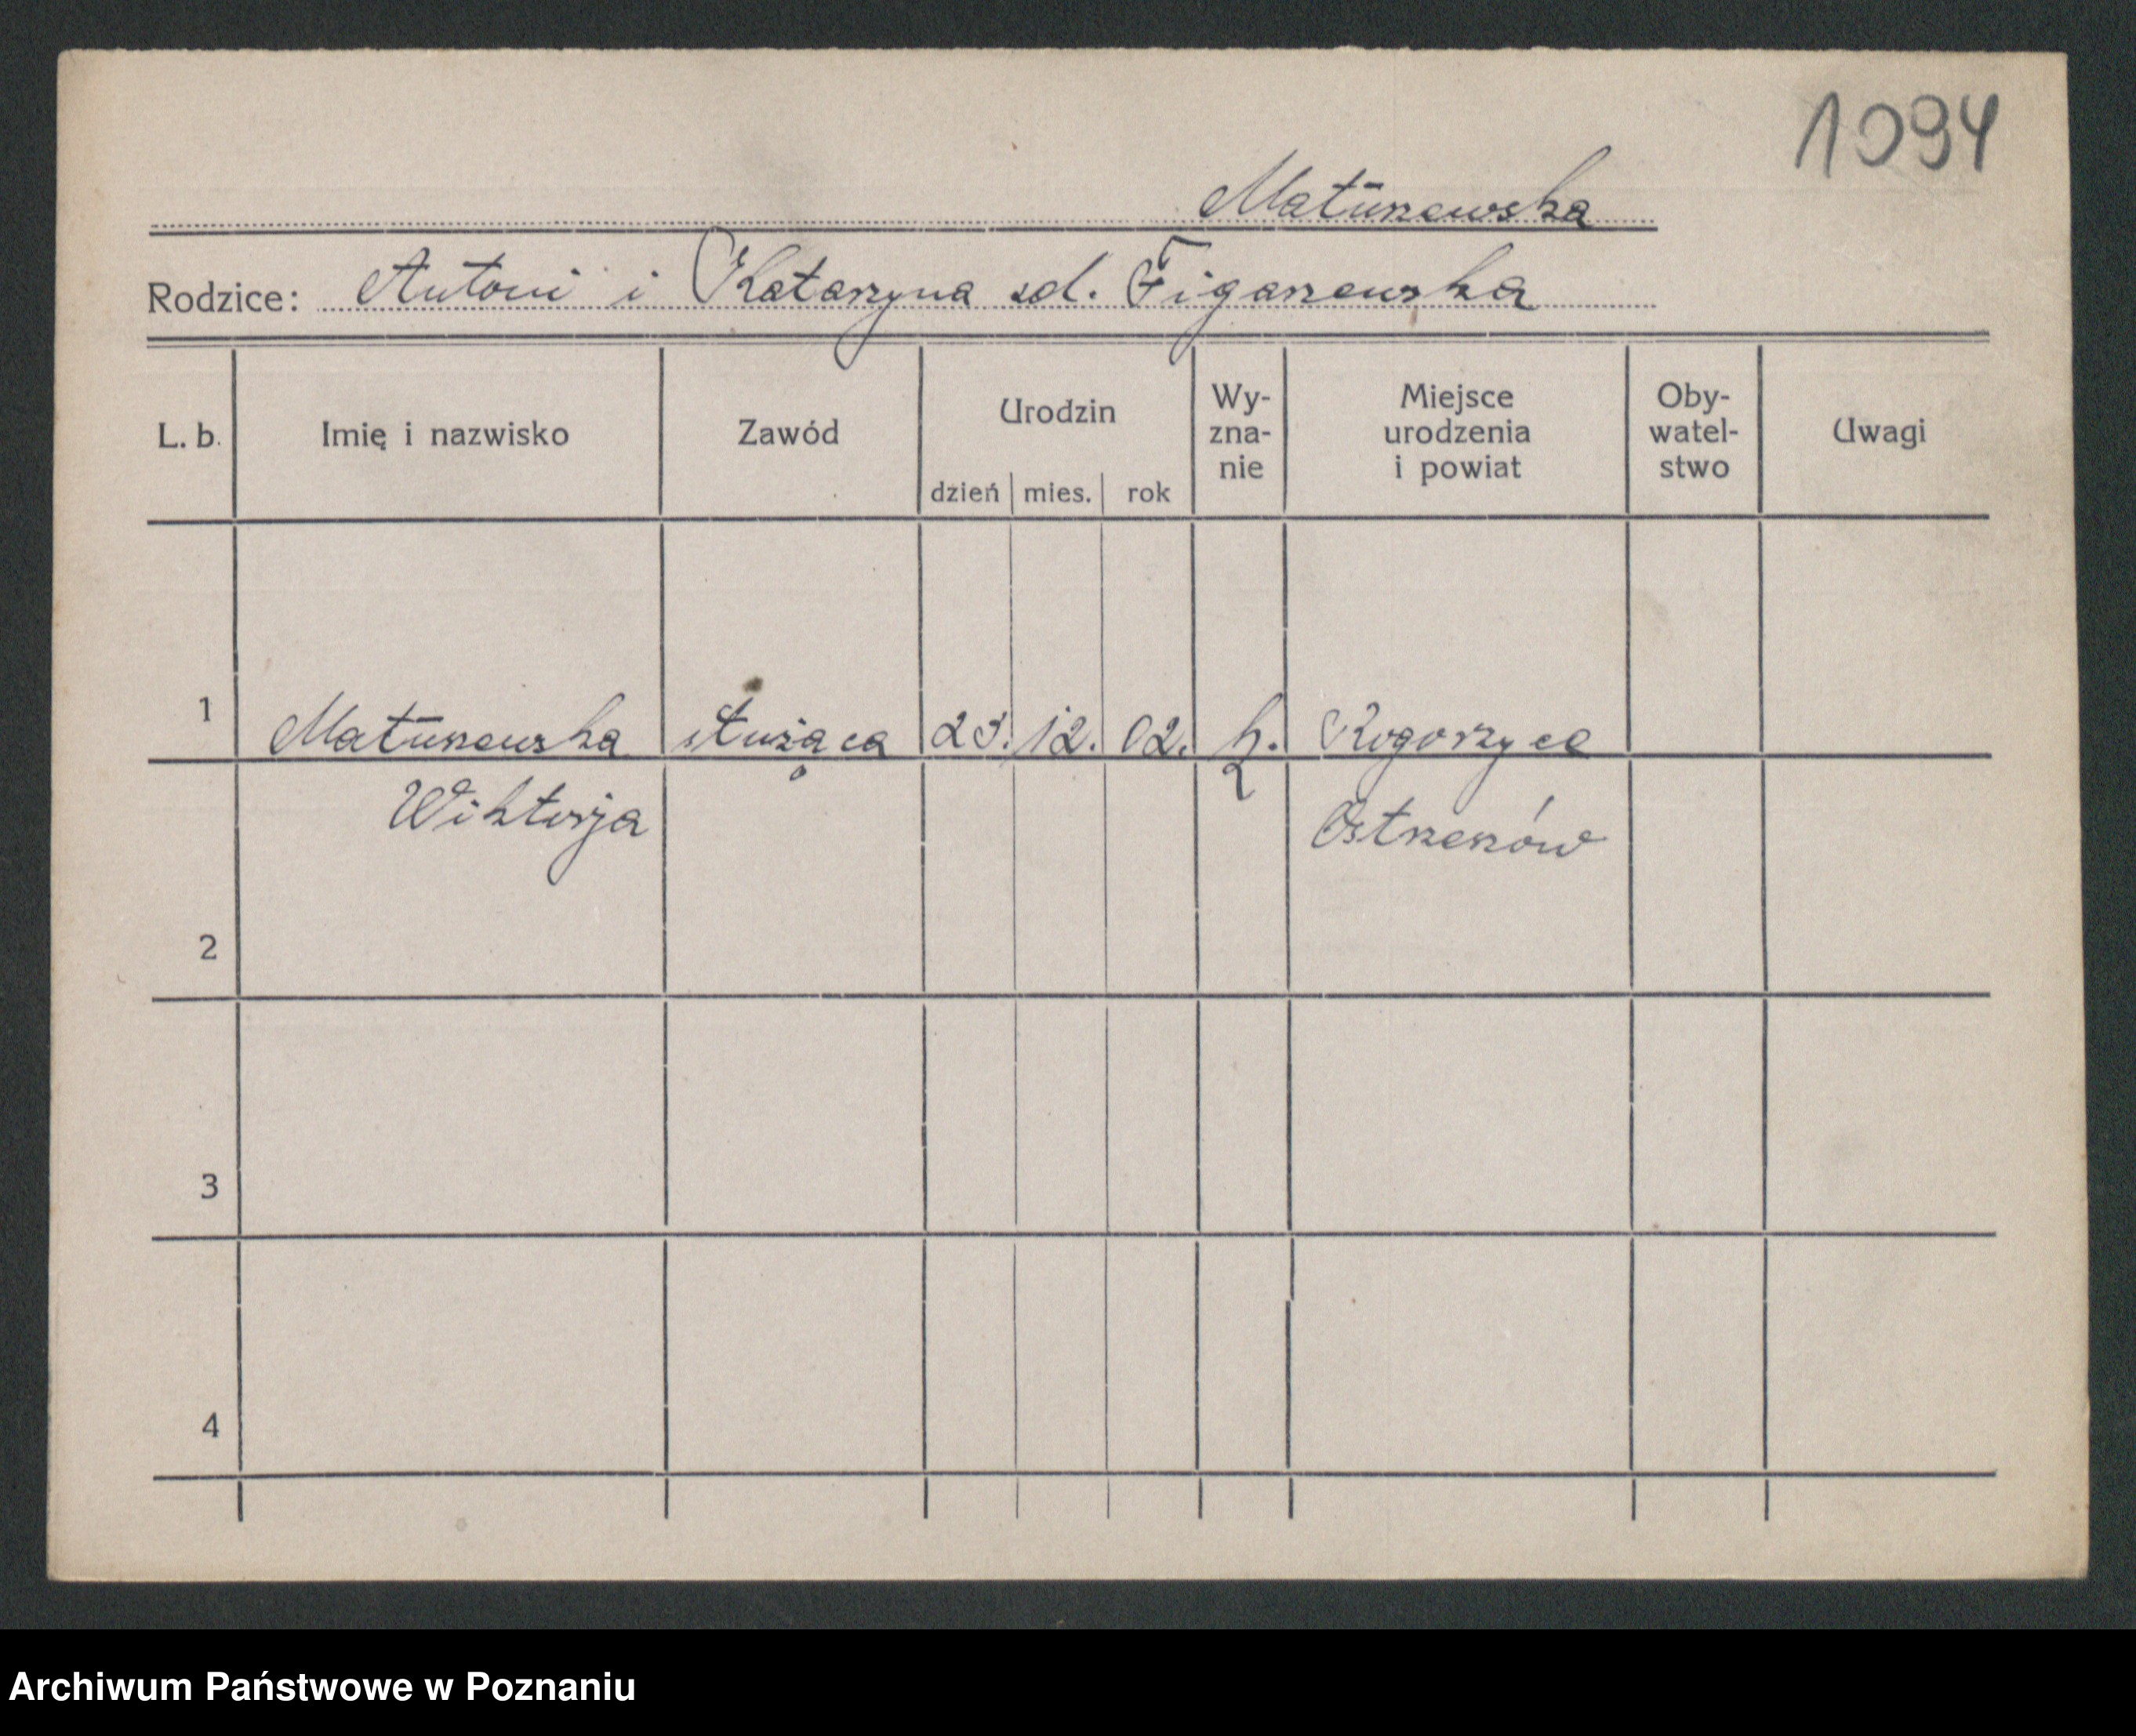 1094
Matuszewska
Rodzice: Antoni i Katarzyna zd. Figaszewska
L. b. Imię i nazwisko Zawód Urodzin dzień mies. rok Wy-zna-nie Miejsce urodzenia i powiat Oby-watel-stwo Uwagi
1 Matuszewska służąca 23. 12. 02. k. Rogorzyce
Wiktorja Ostrzeszów
2
3
4
Archiwum Państwowe w Poznaniu